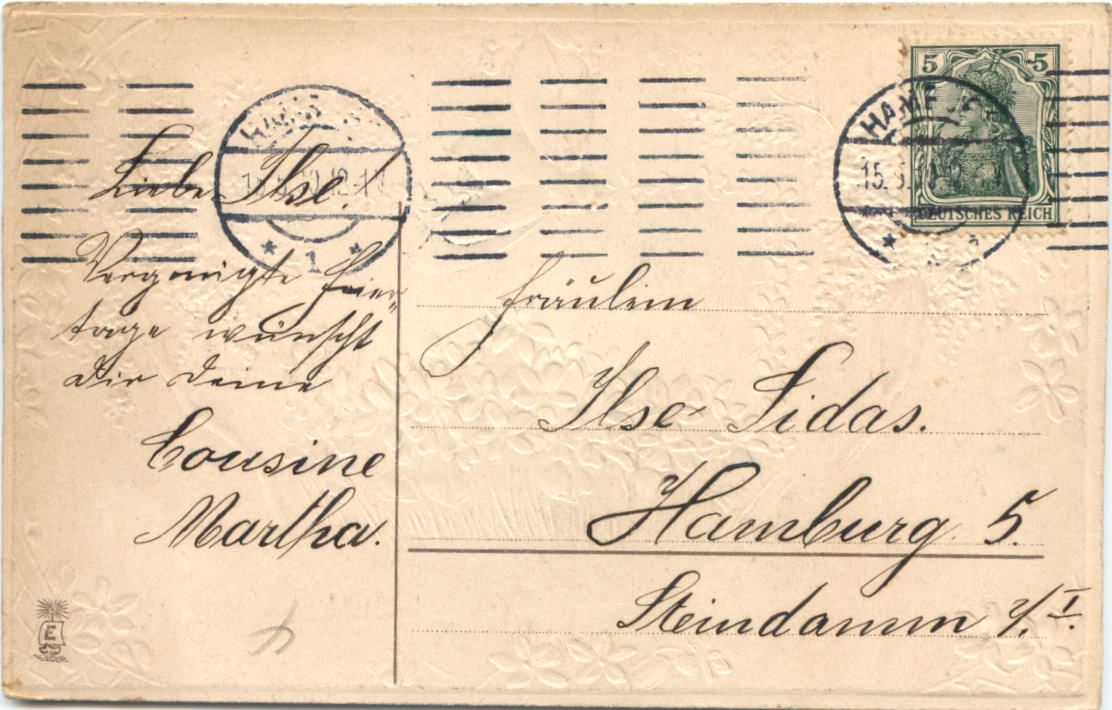 Liebe Ilse!
Vergnügte Feier-
tage wünscht
Dir Deine
Cousine
Martha.
5 5
DEUTSCHES REICH
HAMB
15.
* 1 *
Fräulein
Ilse Sidas.
Hamburg 5.
Steindamm
E